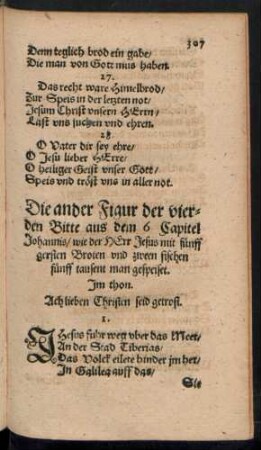 307
Denn teglich brod ein gabe/
Die man von Gott mus haben.
27.
Das recht ware Himelbrod/
Zur Speis in der letzten not/
Jesum Christ vnsern HErrn/
Last vns suchen vnd ehren.
28.
O Vater dir sey ehre/
O Jesu lieber HErre/
O heiliger Geist vnser Gott/
Speis vnd tröst vns in aller not.
Die ander Figur der vier-
den Bitte aus dem 6 Capitel
Johannis/ wie der HErr Jesus mit fünff
gersten Broten vnd zween fischen
fünff tausent man gespeiset.
Im thon.
Ach lieben Christen seid getrost.
1.
IHesus fuhr weit vber das Meer/
An der Stad Tiberias/
Das Volck eilete hinder jm her/
In Galilea auff das/
Sie